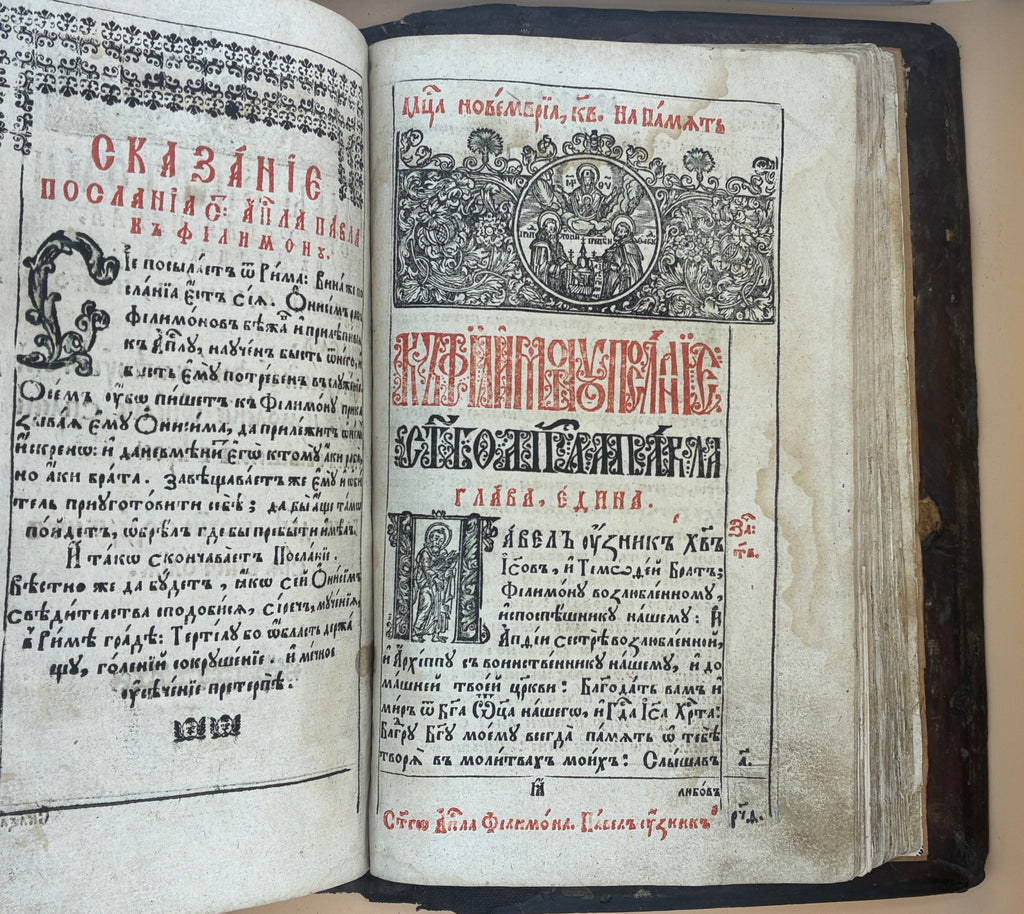 СКАЗА́НІЕ
ПОСЛАНІѦ С҃: АП҃ЛА ПАВЛА
ВЪ ФІЛИМОНУ.
Сіе посыла́етъ ѿ Рима: Вина́ же по
сланїѧ є҆́стъ сїѧ. Ѻ҆ни́сімъ рабъ
Філимо́новъ бѣжа̀ и҆ прилѣпи
къ А҆пⷭ҇лу, наꙋче́нъ бы́сть ѿ него̀, и҆
бы́сть є҆мꙋ̀ потре́бенъ въ слꙋже́нїе
Ѻ҆ се́мъ ᲂу҆́бѡ пи́шетъ къ Філимо́нꙋ прика
зыва́ѧ є҆мꙋ̀ Ѻ҆ни́сіма, да прилежи́тъ ѡ҆ не́мъ
и҆́скренѡ: и҆ да невмѣни́тъ є҆го̀ ктомꙋ̀ а҆́ки раба̀
но а҆́ки бра́та. Завѣщава́етъ же є҆мꙋ̀ и҆ ѡ҆би
тель приꙋгото́вити себѣ̀; да бы а҆́ще та́мѡ
по́йдетъ, ѡ҆брѣ́лъ гдѣ бы пребы́ти и҆мѣ́лъ.
И҆ та́кѡ сконча́ваетъ Посла́нїе.
Вѣ́стно же да бꙋ́детъ, ꙗ҆́кѡ се́й Ѻ҆ни́сімъ
свѣди́тельства сподо́бисѧ, си́речь, мꙋче́нїѧ,
в Ри́мѣ гра́дѣ: Терті́лꙋ бо ѡ҆́бласть держа́
щꙋ, голе́ній сокрꙋше́нїе. и҆ ме́чное
ᲂу҆сѣче́нїе претерпѣ̀.
Мⷭ҇ца нове́мврїа, к҃в. на па́мѧть
МР҃ ѲУ҃
КЪ ФИЛИМОНУ ПОСЛАНЇЕ
СТ҃ГО АПⷭ҇ЛА ПАВЛА
ГЛАВА̀, Є҆ДИ́НА.
ПА́ВЕЛЪ ᲂу҆́зникъ Хⷭ҇въ
І҆с҃овъ, и҆ Тимоѳе́й бра́тъ;
Філимо́нꙋ возлю́бленномꙋ,
и҆ споспѣ́шникꙋ на́шемꙋ: И҆
А҆пфі́и сестрѣ̀ возлю́бленнѣй,
и҆ А҆рхі́ппꙋ съ во́инственникꙋ на́шемꙋ, и҆ до
ма́шней твое́й цр҃кви: Бл҃года́ть ва́мъ и҆
ми́ръ ѿ Бг҃а Ѻ҆ц҃а на́шегѡ, и҆ Гдⷭ҇а І҆с҃а Хрⷭ҇та:
Бл҃годарю̀ Бг҃ꙋ моемꙋ̀ всегда̀ па́мѧть ѡ҆ тебѣ̀
творѧ̀ въ моли́твахъ мои́хъ: Слы́шавъ
За:
тв.
а҃.
ГЛ
любо́въ
Ст҃гѡ А҆пⷭ҇ла Филимо́на. Па́велъ ᲂу҆́зникъ
рч҃д.